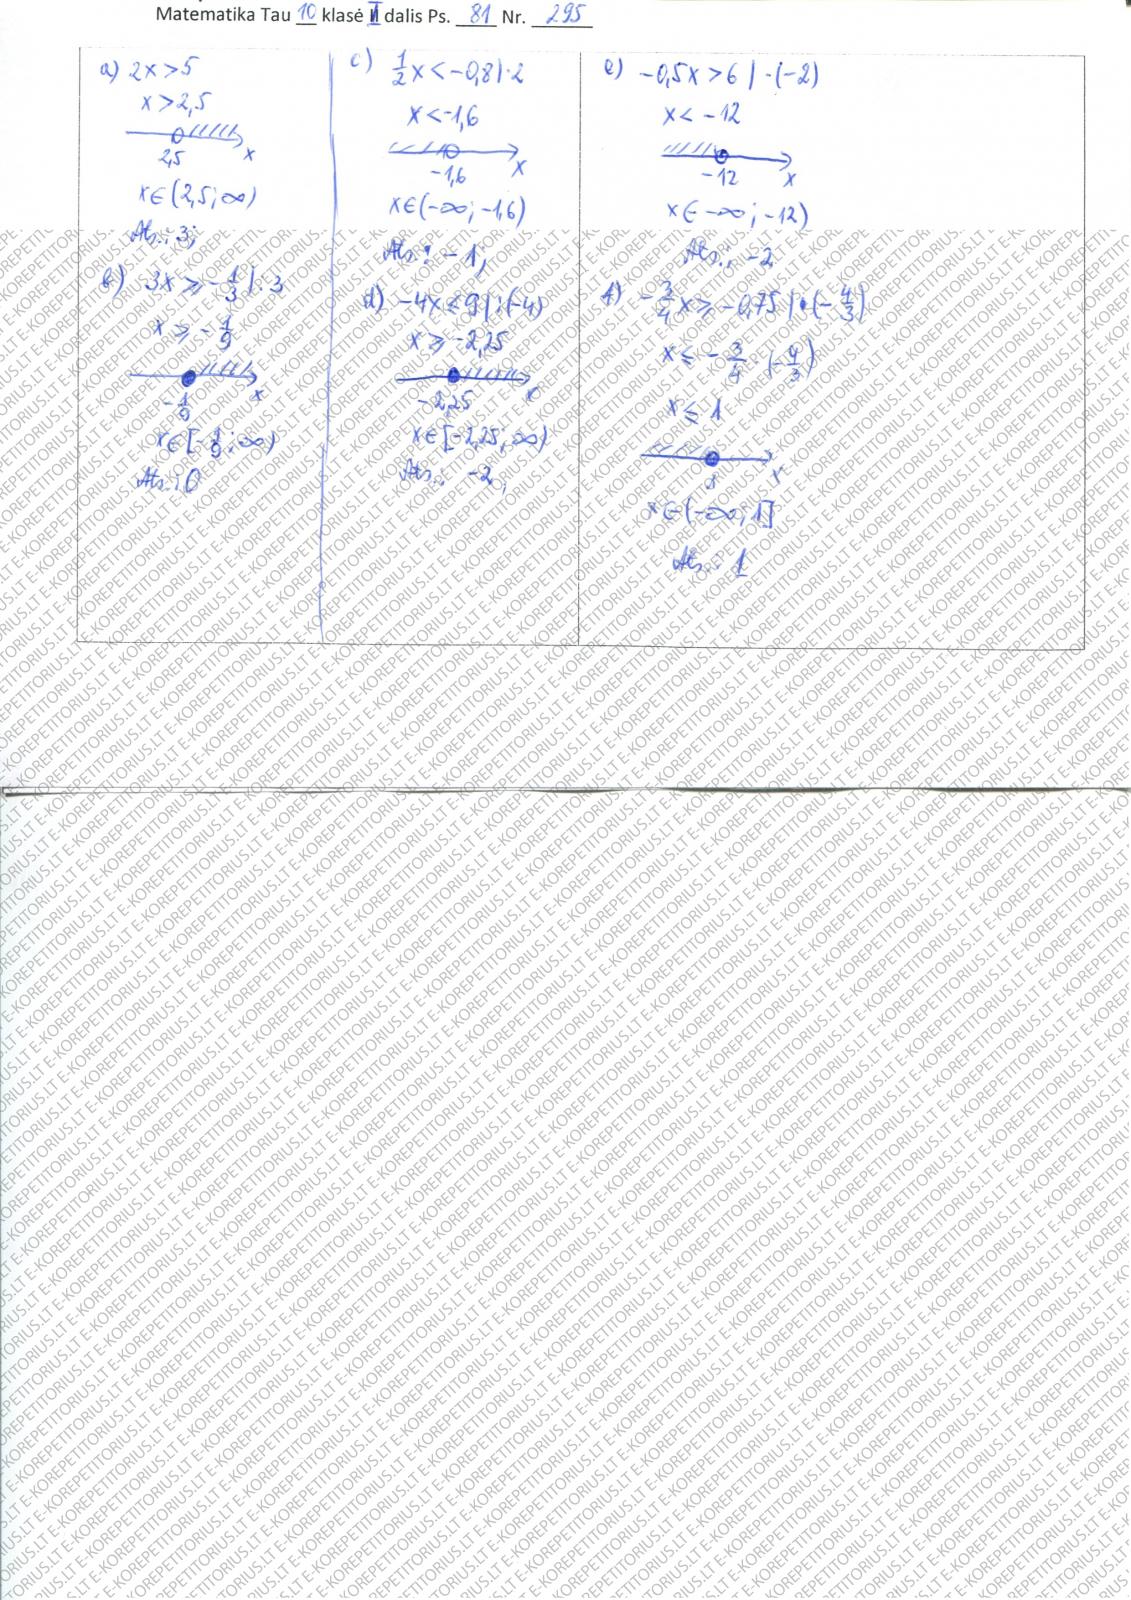 Matematika Tau 10 klasė II dalis Ps. 81 Nr. 295
a) 2x > 5
x > 2,5
2,5 x
x∈(2,5; ∞)
Ats.: 3;
b) 3x ≥ -1/3 | : 3
x ≥ -1/9
-1/9 x
x∈[-1/9; ∞)
Ats.: 0
c) 1/2x < -0,8 | · 2
x < -1,6
-1,6 x
x∈(-∞; -1,6)
Ats.: -1;
d) -4x ≤ 9 | : (-4)
x ≥ -2,25
-2,25 x
x∈[-2,25; ∞)
Ats.: -2;
e) -0,5x > 6 | · (-2)
x < -12
-12 x
x∈-∞; -12)
Ats.: -2
f) -3/4x ≥ -0,75 | · (-4/3)
x ≤ -3/4 · (-4/3)
x ≤ 1
1 x
x∈(-∞; 1]
Ats.: 1
E-KOREPETITORIUS.LT